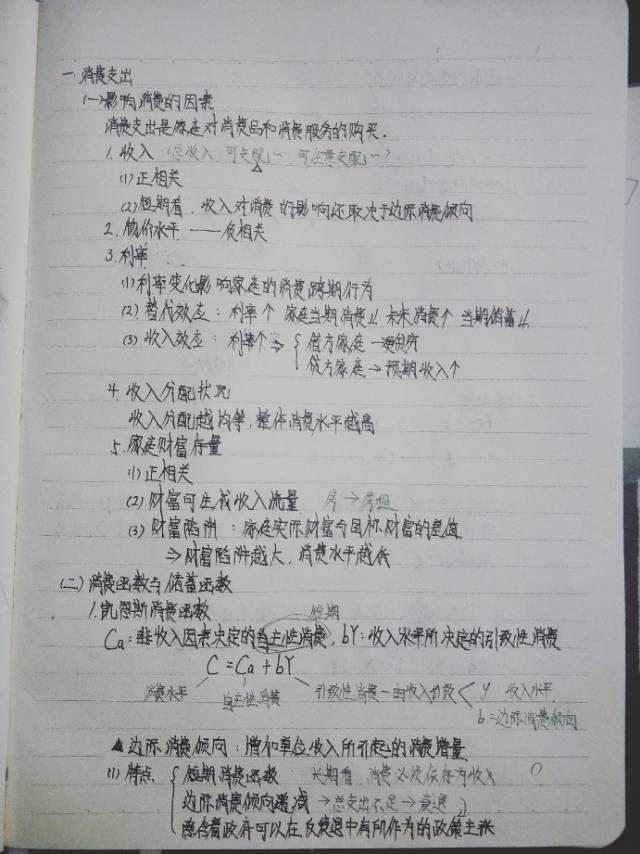 一.消费支出
(一)影响消费的因素
消费支出是家庭对消费品和消费服务的购买.
1.收入 (总收入 可支配~ 可任意支配~)
(1)正相关
(2)短期看,收入对消费的影响还取决于边际消费倾向
2.物价水平 ——反相关
3.利率
(1)利率变化影响家庭的消费跨期行为
(2)替代效应:利率↑ 家庭当期消费↓ 未来消费↑ 当期储蓄
(3)收入效应:利率↑⇒ { 借方家庭
贷方家庭→预期收入↑
4.收入分配状况
收入分配越均等,整体消费水平越高
5.家庭财富存量
(1)正相关
(2)财富可生成收入流量 房→房租
(3)财富陷阱:家庭实际财富与目标财富的差值
⇒财富陷阱越大,消费水平越低
(二)消费函数与储蓄函数
1.凯恩斯消费函数 短期
Ca:非收入因素决定的自主性消费,bY:收入水平所决定的引致性消费
C=Ca+bY
消费水平 自主性消费 引致性消费—由收入引致 < Y 收入水平
b=边际消费倾向
▲边际消费倾向:增加单位收入所引起的消费增量
(1)特点 { 短期消费函数 长期看 消费必须依存于收入
边际消费倾向递减→总支出不足→衰退
隐含着政府可以在反衰退中有所作为的政策主张